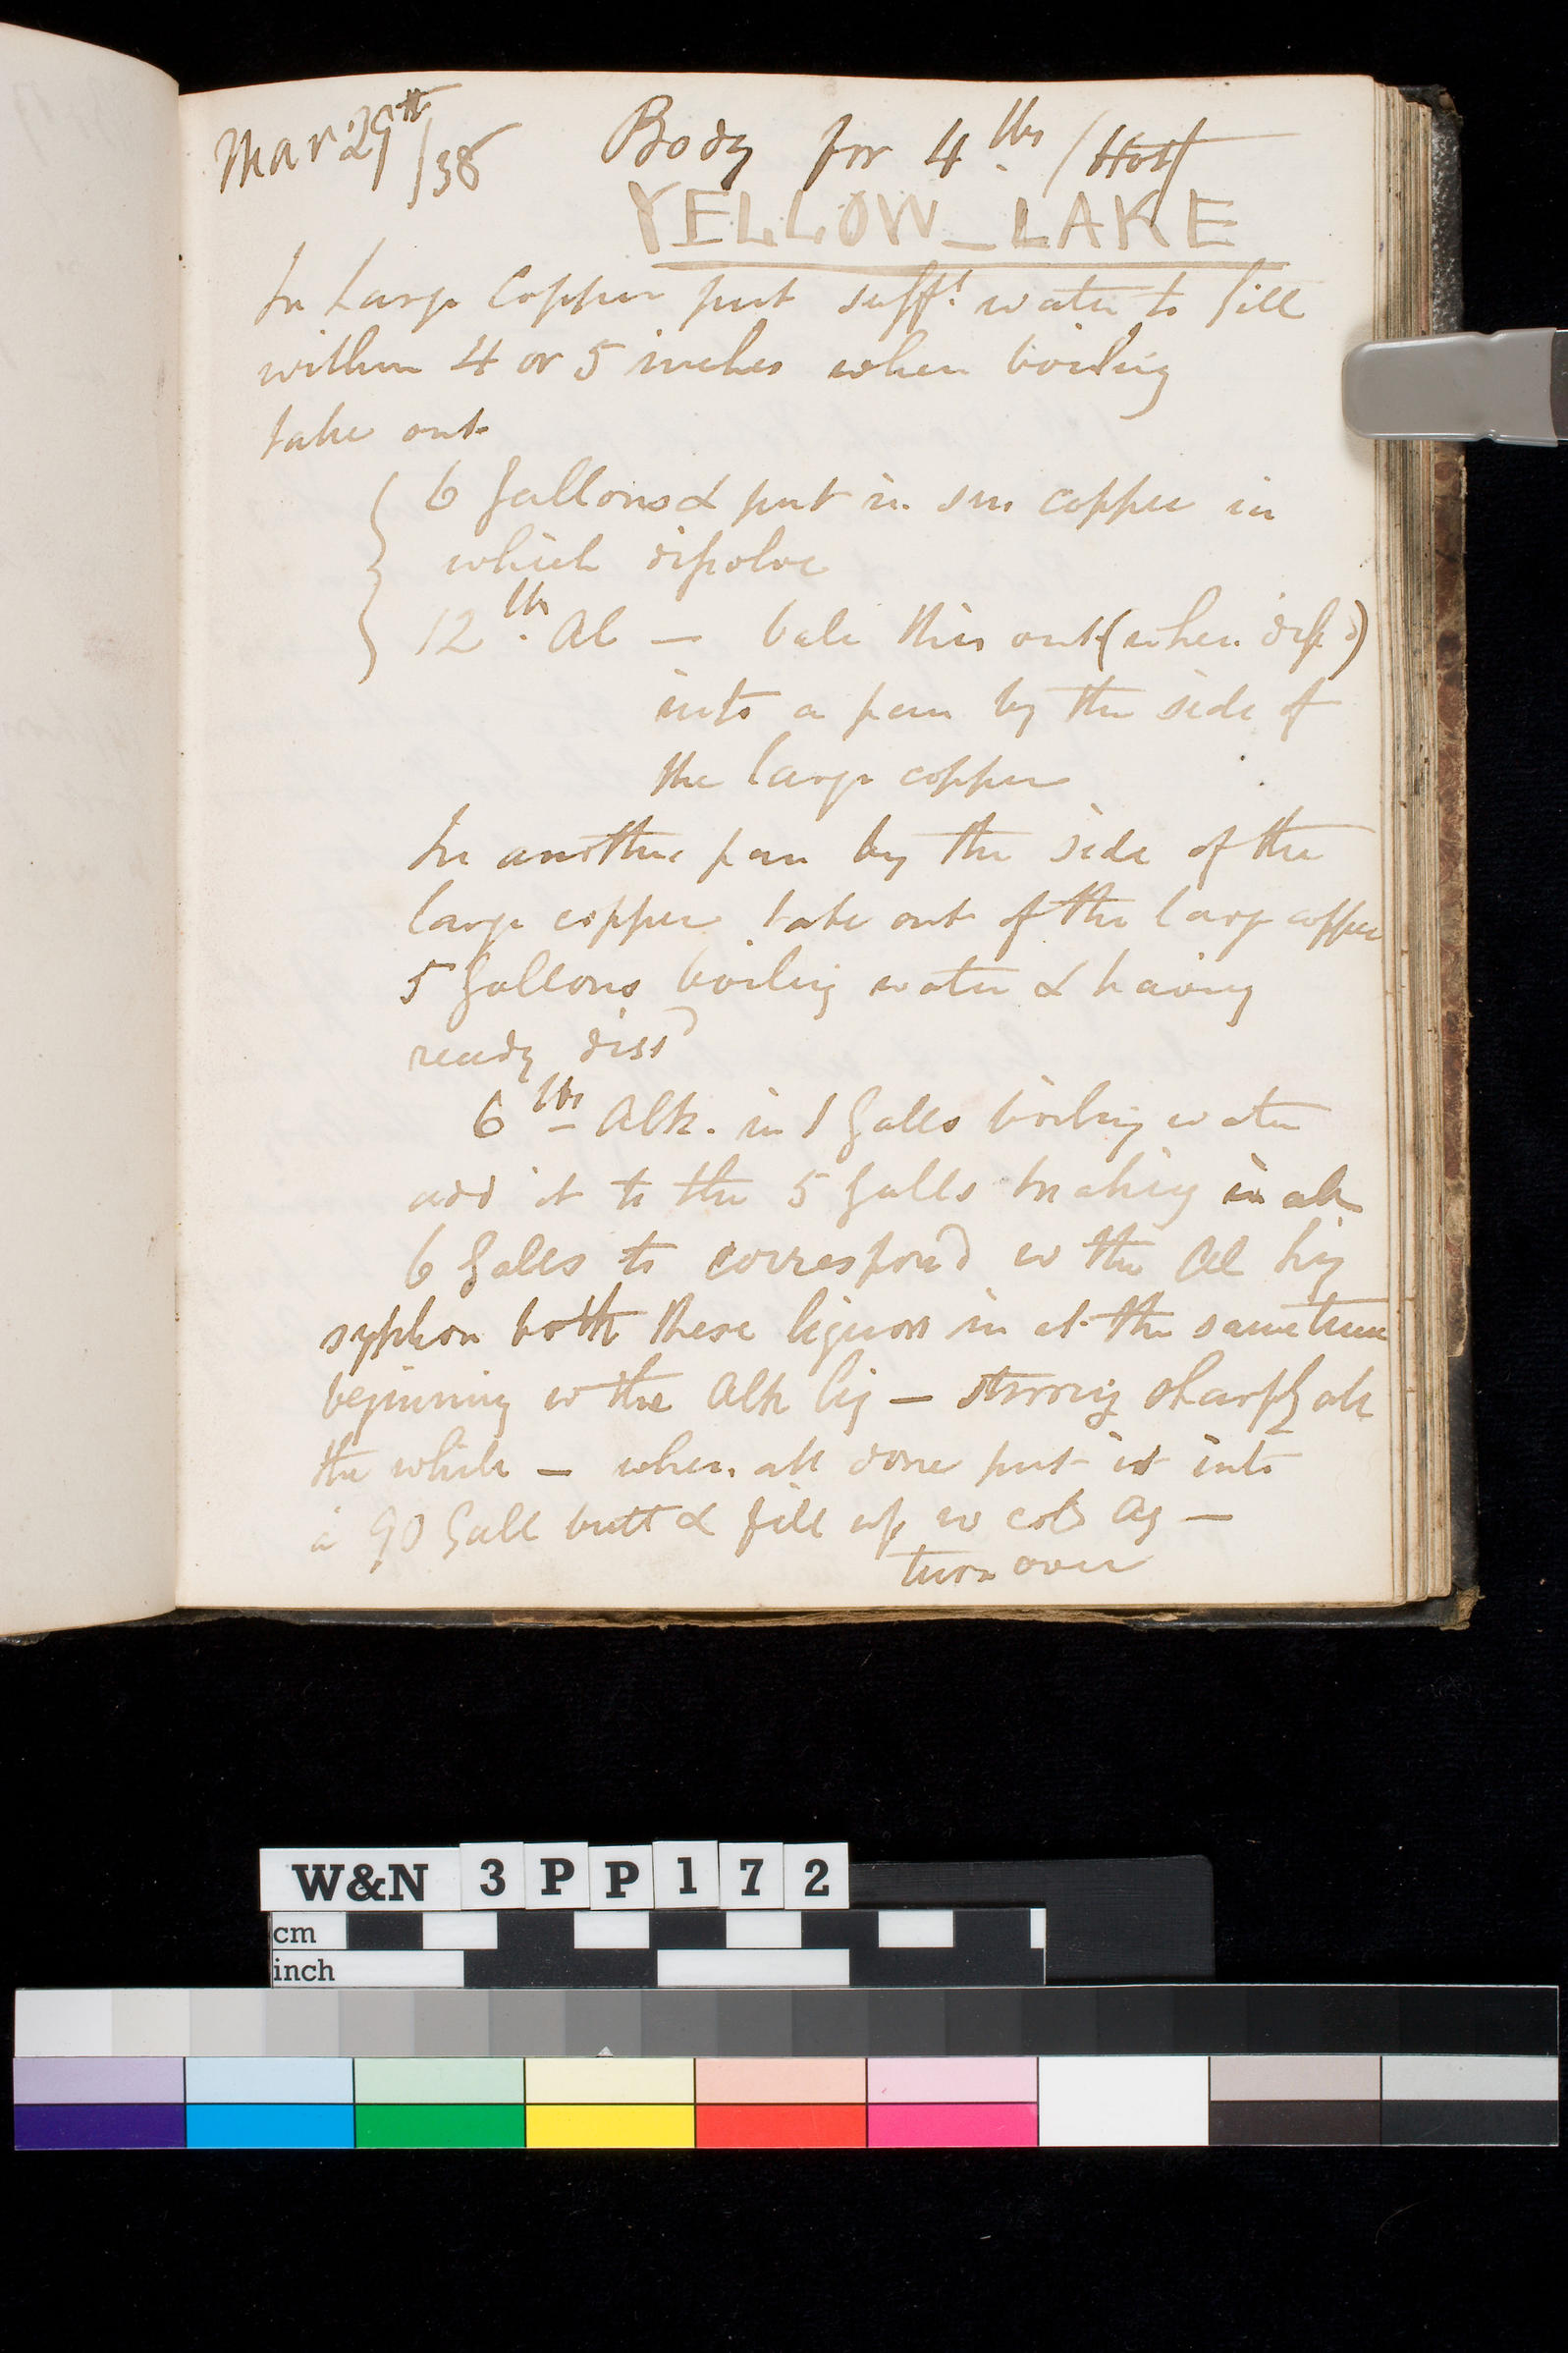 Mar 29th/38 Body for 4 lbs /Hot/
YELLOW_LAKE
In Large Copper put sufft water to fill
within 4 or 5 inches when boiling
take out
6 gallons & put in sm copper in
which dissolve
12 lbs Al — bale this out (when dissd)
into a pan by the side of
the large copper
In another pan by the side of the
large copper take out of the large copper
5 gallons boiling water & having
ready dissd
6 lbs Alk. in 1 galls boiling water
add it to the 5 galls making in all
6 galls to correspond w the Al liq
syphon both these liquors in at the same time
beginning w the Alk liq — stirring sharply all
the while — when all done put it into
a 90 gall butt & fill up w cold Aq —
turn over
W&N 3PP172
cm
inch